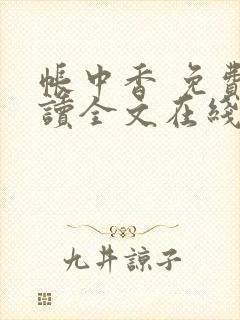 帳中香 免費
讀全文在綫
九井諒子